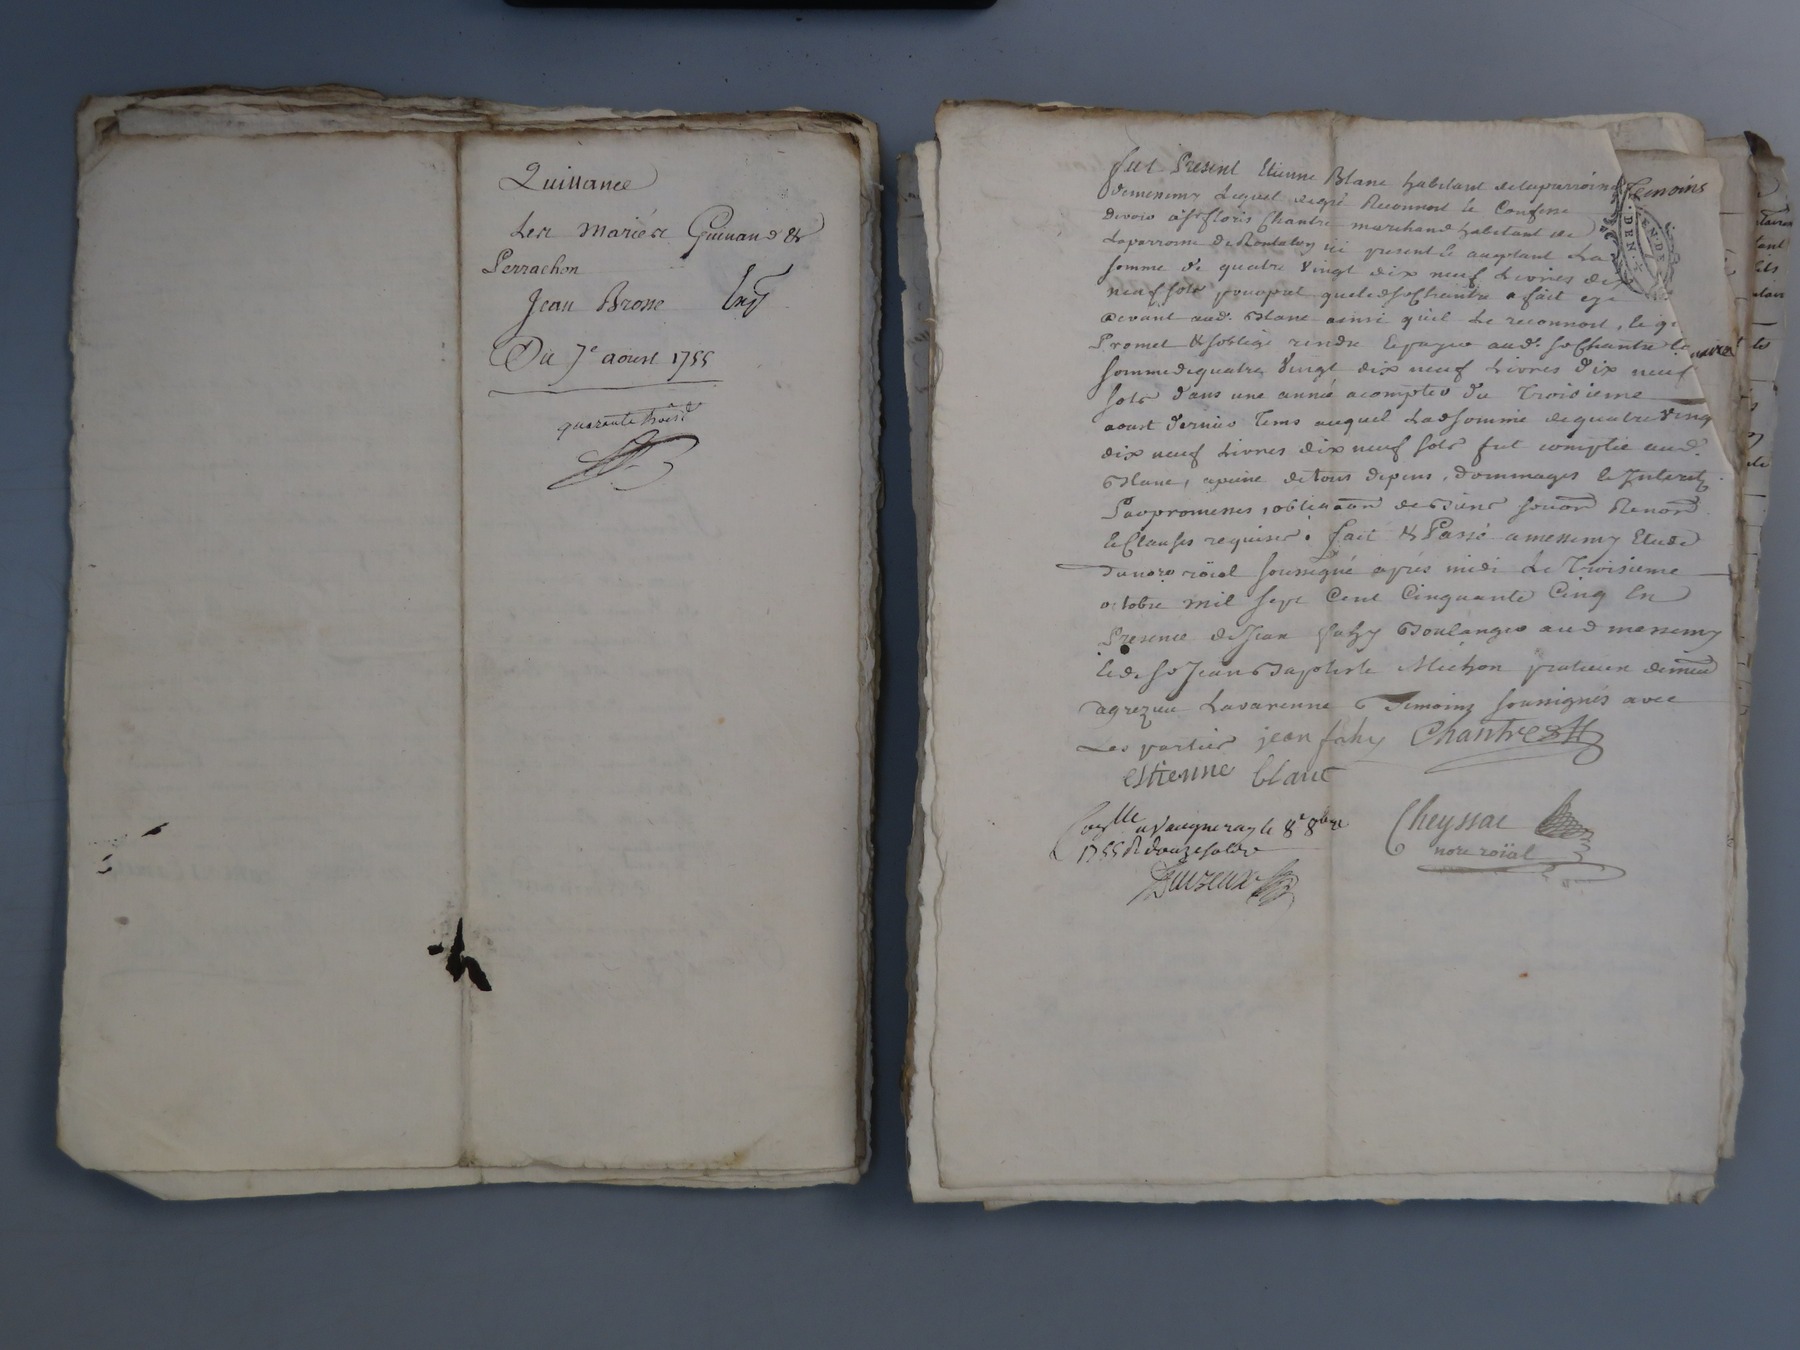 Quittance
Les mariés Guinand &
Perrachon
Jean Brosse
Du 7e aoust 1755
quarante trois
fut Present Etienne Blanc habitant de la parroisse
de messimy Lequel de gré Reconnoit & Confesse
devoir à sr floris Chantre marchand habitant de
La parroisse de Rontalon ici present & acceptant La
somme de quatre vingt dix neuf Livres dix
neuf sols pour pret que led sr Chantre a fait cy
devant aud. Blanc ainsi qu'il Le reconnoit, le q
Promet & soblige rendre & payer aud. sr Chantre la
somme de quatre vingt dix neuf Livres dix neuf
sols dans une année a compter du troisieme
aoust dernier tems auquel Lad somme de quatre ving
dix neuf Livres dix neuf sols fut comptée aud.
Blanc, a peine de tous depens, dommages & Interets
Par promesses, obligaon de Biens soumon Renonon
& Clauses requises. fait & Passé a messimy Etude
du nore roïal soussigné après midi Le Troisieme
octobre mil sept Cent Cinquante Cinq En
Presence de Jean fahy Boulanger aud messimy
& de sr Jean Baptiste Michon praticien demeu
a grezieu Lavarenne Temoins soussignés avec
Les parties jean fahy Chantre
estienne blanc
Conlle a Vaugneray le 8e 8bre
1755 R douze sols
Cheyssac
nore roïal
Temoins